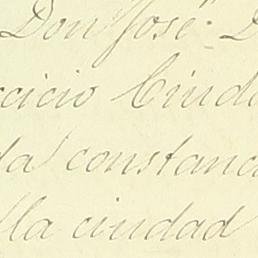 Don José. D
rcicio Ciuda
da constanc
lla ciudad